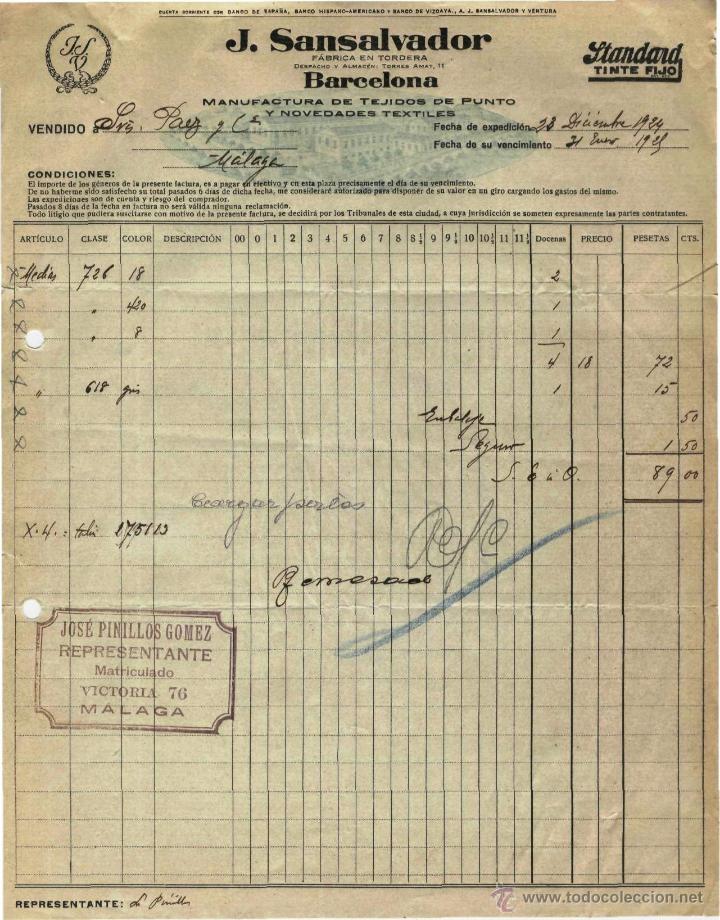 CUENTA CORRIENTE CON BANCO DE ESPAÑA, BANCO HISPANO-AMERICANO Y BANCO DE VIZCAYA., A. J. SANSALVADOR Y VENTURA
J. S. V.
J. Sansalvador
FÁBRICA EN TORDERA
DESPACHO Y ALMACÉN: TORRES AMAT, 11
Barcelona
Standard
TINTE FIJO
MANUFACTURA DE TEJIDOS DE PUNTO
Y NOVEDADES TEXTILES
VENDIDO a Srs. Paez y Cª
Málaga
Fecha de expedición 23 Diciembre 1924
Fecha de su vencimiento 31 Enero 1925
CONDICIONES:
El importe de los géneros de la presente factura, es a pagar en efectivo y en esta plaza precisamente el día de su vencimiento.
De no haberme sido satisfecho su total pasados 6 días de dicha fecha, me consideraré autorizado para disponer de su valor en un giro cargando los gastos del mismo.
Las expediciones son de cuenta y riesgo del comprador.
Pasados 8 días de la fecha en factura no será válida ninguna reclamación.
Todo litigio que pudiera suscitarse con motivo de la presente factura, se decidirá por los Tribunales de esta ciudad, a cuya jurisdicción se someten expresamente las partes contratantes.
ARTÍCULO CLASE COLOR DESCRIPCIÓN 00 0 1 2 3 4 5 6 7 8 8½ 9 9½ 10 10½ 11 11½ Docenas PRECIO PESETAS CTS.
Medias 726 18 2
" 420 1
" 8 1
4 18 72
" 618 gris 1 15
Embalaje 50
Seguro 1 50
S. E. ú O. 89 00
Cargar portes
X. 4. : 275113
Remesado
JOSÉ PINILLOS GOMEZ
REPRESENTANTE
Matriculado
VICTORIA 76
MÁLAGA
REPRESENTANTE: Pinillos
www.todocoleccion.net